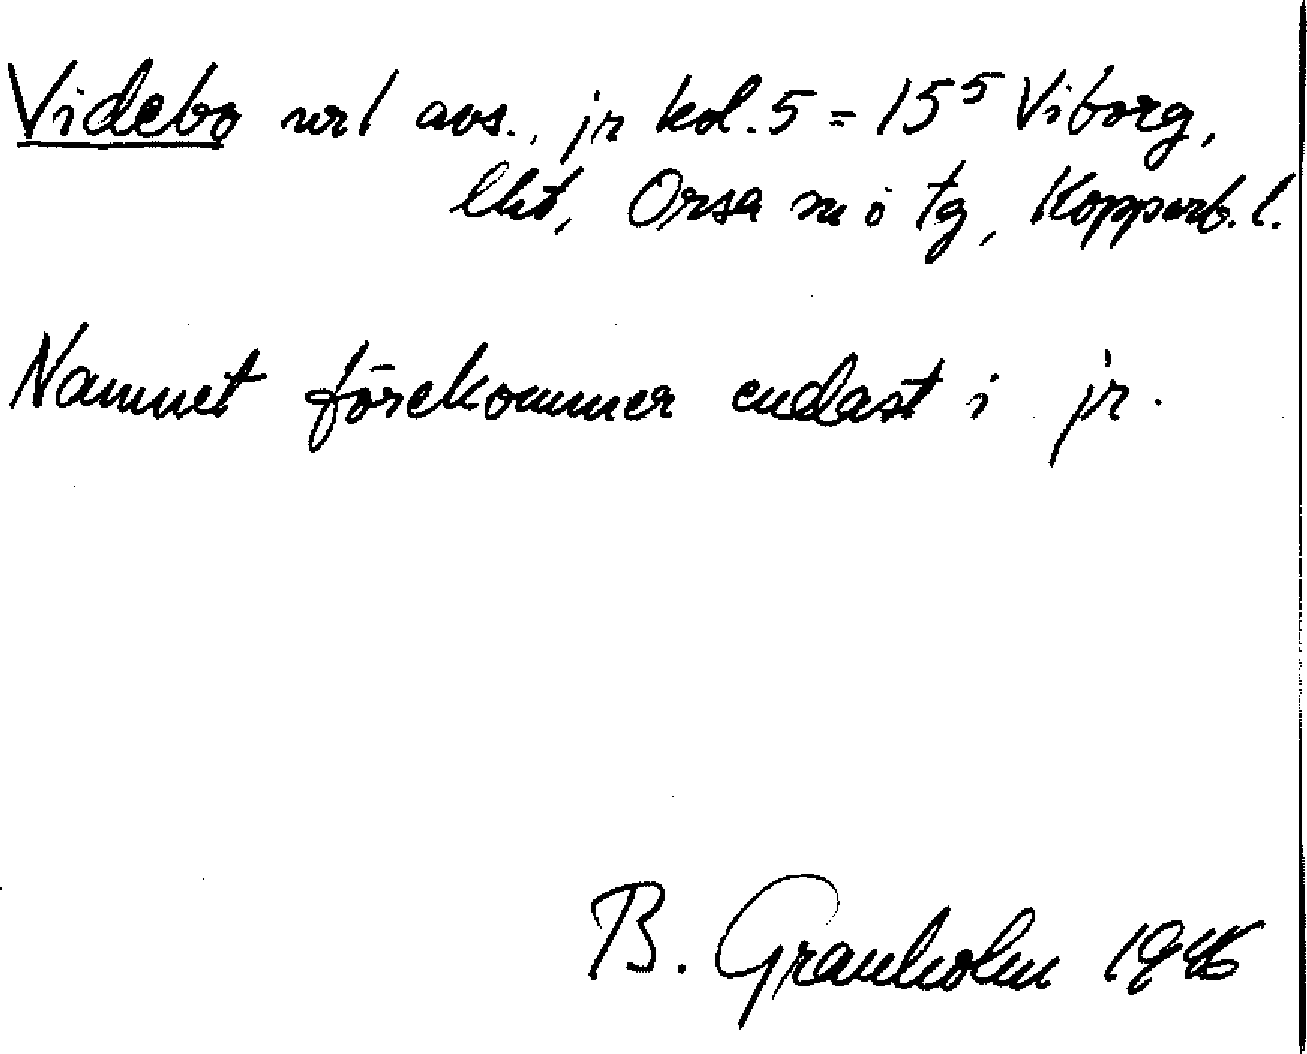 Videbo url avs., jr kol. 5 = 15⁵ Viborg,
lht, Orsa sn o tg, Kopparb. l.
Namnet förekommer endast i jr.
B. Granholm 1946